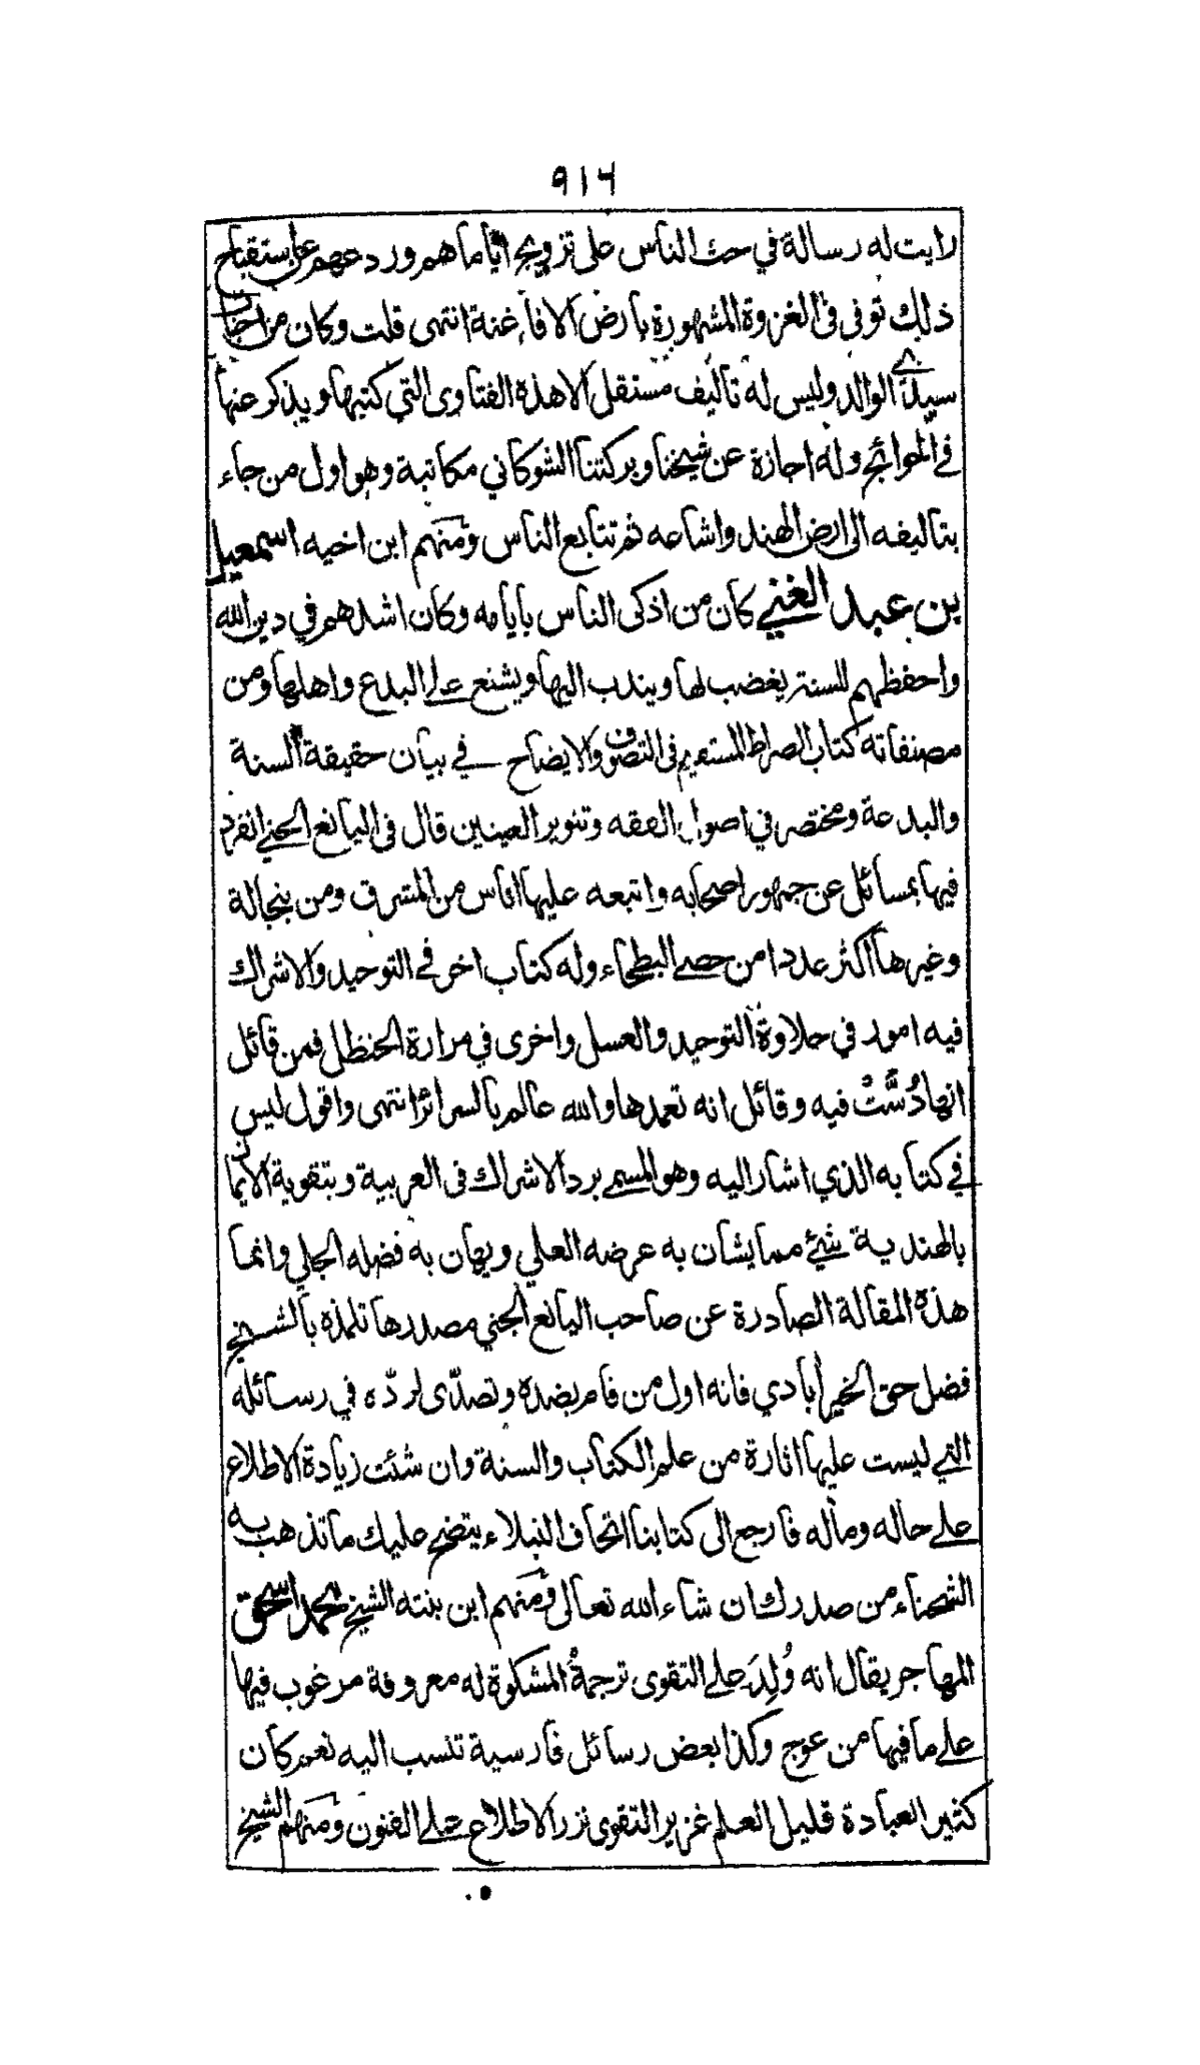 ٩١٤
رايت له رسالة في حث الناس على تزويج اياماهم وردعهم عن استقباح
ذلك توفي في الغزوة المشهورة بارض الافاغنة انتهى قلت وكان من احبّاء
سيدي الوالد وليس له تاليف مستقل الا هذه الفتاوى التي كتبها ويذكر عنها
في الحوائج وله اجازة عن شيخنا وبركتنا الشوكاني مكاتبة وهو اول من جاء
بتاليفه الى ارض الهند واشاعه ثم تتابع الناس ومنهم ابن اخيه اسمعيل
بن عبد الغني كان من اذكى الناس بايامه وكان اشدهم في دين الله
واحفظهم للسنة يغضب لها ويندب اليها ويشنع على البدع واهلها ومن
مصنفاته كتاب الصراط المستقيم في التصوف والايضاح في بيان حقيقة السنة
والبدعة ومختصر في اصول الفقه وتنوير العينين قال في اليانع الجني انفرد
فيها بمسائل عن جمهور اصحابه واتبعه عليها اناس من المشرق ومن بنجالة
وغيرها اكثر عددا من حصى البطحاء وله كتاب اخر في التوحيد والاشراك
فيه امور في حلاوة التوحيد والعسل واخرى في مرارة الحنظل فمن قائل
انها دُسَّتْ فيه وقائل انه تعمدها والله عالم بالسرائر انتهى واقول ليس
في كتابه الذي اشار اليه وهو المسمى برد الاشراك في العربية وبتقوية الايمان
بالهندية شيئ مما يشان به عرضه العلي ويهان به فضله الجلي وانما
هذه المقالة الصادرة عن صاحب اليانع الجني مصدرها تلمذه بالشيخ
فضل حق الخيرآبادي فانه اول من قام بضده وتصدّى لردّه في رسائله
التي ليست عليها اثارة من علم الكتاب والسنة وان شئت زيادة الاطلاع
على حاله ومآله فارجع الى كتابنا اتحاف النبلاء يتضح عليك ما تذهب به
الشحناء من صدرك ان شاء الله تعالى ومنهم ابن بنته الشيخ محمد اسحق
المهاجر يقال انه وُلِدَ على التقوى ترجمةُ المشكوة له معروفة مرغوب فيها
على ما فيها من عوج وكذا بعض رسائل فارسية تنسب اليه نعم كان
كثير العبادة قليل العلم غزير التقوى نزر الاطلاع على الفنون ومنهم الشيخ